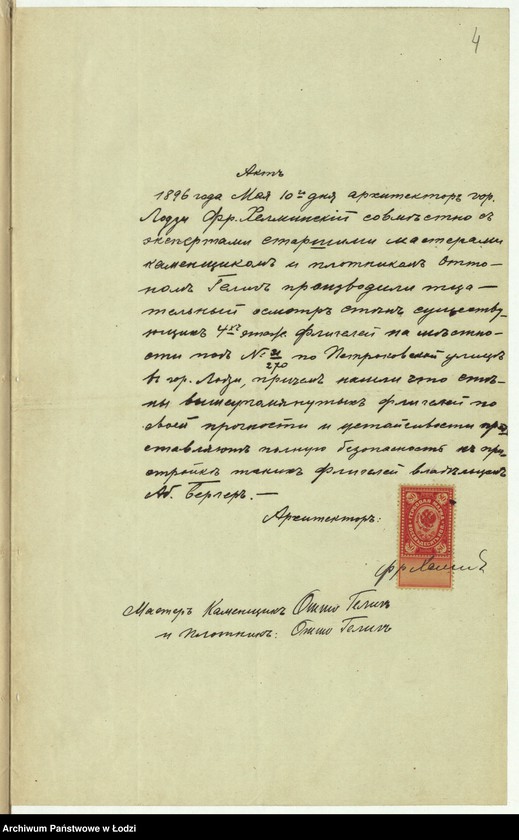 4
Актъ
1896 года Мая 10го дня архитекторъ гор.
Лодзи Фр. Хелминскій совмѣстно съ
экспертами старшими мастерами
каменщикомъ и плотникомъ Отто-
номъ Гелигъ производили тща-
тельный осмотръ стѣнъ существу-
ющихъ 4хъ этаж. флигелей на мѣстно-
сти подъ № 21/270 по Петроковской улицѣ
въ гор. Лодзи, причемъ нашли что стѣ-
ны вышеупомянутыхъ флигелей по
своей прочности и устойчивости пред
ставляютъ полную безопасность къ при-
стройкѣ такихъ флигелей владѣльцемъ
Аб. Бергеръ. —
Архитекторъ:
Мастеръ Каменщикъ Отто Гелигъ
и Плотникъ: Отто Гелигъ
Archiwum Państwowe w Łodzi